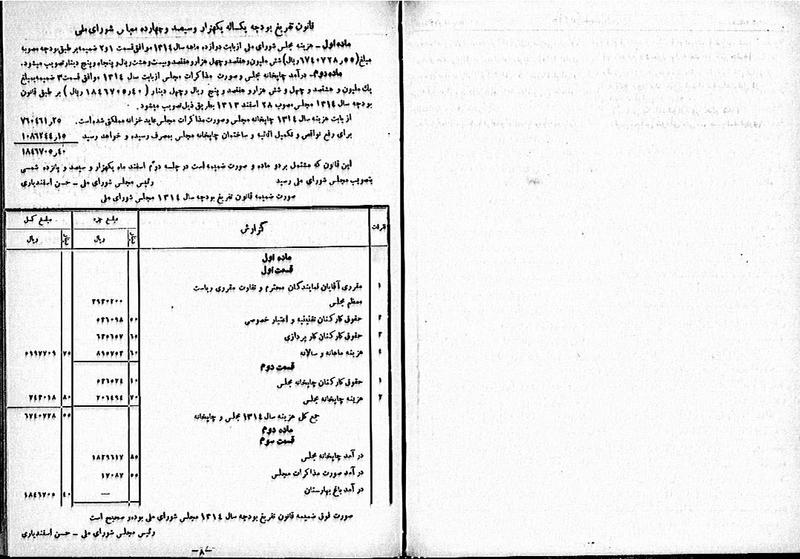 قانون تفریغ بودجه یکساله یکهزار و سیصد و چهارده مجلس شورای ملی
ماده اول - هزینه مجلس شورای ملی از بابت دوازده ماهه سال ۱۳۱۴ موافق قسمت ۱و۲ ضمیمه بر طبق بودجه مصوبه
مبلغ (۶۷۴۰۷۲۸٫۵۵ ریال) شش ملیون و هفتصد و چهل هزار و هفتصد و بیست و هشت ریال و پنجاه و پنج دینار تصویب میشود.
ماده دوم - درآمد چاپخانه مجلس وصورت مذاکرات مجلس از بابت سال ۱۳۱۴ موافق قسمت ۳ ضمیمه بمبلغ
یك ملیون و هشتصد و چهل و شش هزار و هفتصد و پنج ریال و چهل دینار ( ۱۸۴۶۷۰۵٫۴۰ ریال ) بر طبق قانون
بودجه سال ۱۳۱۴ مجلس مصوب ۲۸ اسفند ۱۳۱۳ بطریق ذیل تصویب میشود.
از بابت هزینه سال ۱۳۱۴ چاپخانه مجلس وصورت مذاکرات مجلس عاید خزانه مملکتی شده است. ۷۶۰۴۶۱٫۲۵
برای رفع نواقص و تکمیل اثاثیه و ساختمان چاپخانه مجلس بمصرف رسیده و خواهد رسید ۱۰۸۶۲۴۴٫۱۵
۱۸۴۶۷۰۵٫۴۰
این قانون که مشتمل بر دو ماده و صورت ضمیمه است در جلسه دوم اسفند ماه یکهزار و سیصد و پانزده شمسی
بتصویب مجلس شورای ملی رسید رئیس مجلس شورای ملی - حسن اسفندیاری
صورت ضمیمه قانون تفریغ بودجه سال ۱۳۱۴ مجلس شورای ملی
فقرات گزارش مبلغ جزء مبلغ کل
دینار ریال دینار ریال
ماده اول
قسمت اول
۱ مقرری آقایان نمایندگان محترم و تفاوت مقرری ریاست
معظم مجلس
۲ حقوق کارکنان تقنینیه و اعتبار خصوصی ۵۰
۳ حقوق کارکنان کار پردازی ۶۵
۴ هزینه ماهانه و سالانه ۶۰ ۷۵
قسمت دوم
۱ حقوق کارکنان چاپخانه مجلس ۱۰
۲ هزینه چاپخانه مجلس ۷۰ ۸۰
جمع کل هزینه سال ۱۳۱۴ مجلس و چاپخانه ۵۵ ۶۷۴۰۷۲۸
ماده دوم
قسمت سوم
در آمد چاپخانه مجلس ۸۵ ۱۸۲۹۶۱۷
در آمد صورت مذاکرات مجلس ۵۵ ۱۷۰۸۷
در آمد باغ بهارستان — ۴۰ ۱۸۴۶۷۰۵
صورت فوق ضمیمه قانون تفریغ بودجه سال ۱۳۱۴ مجلس شورای ملی بوده و صحیح است
رئیس مجلس شورای ملی - حسن اسفندیاری